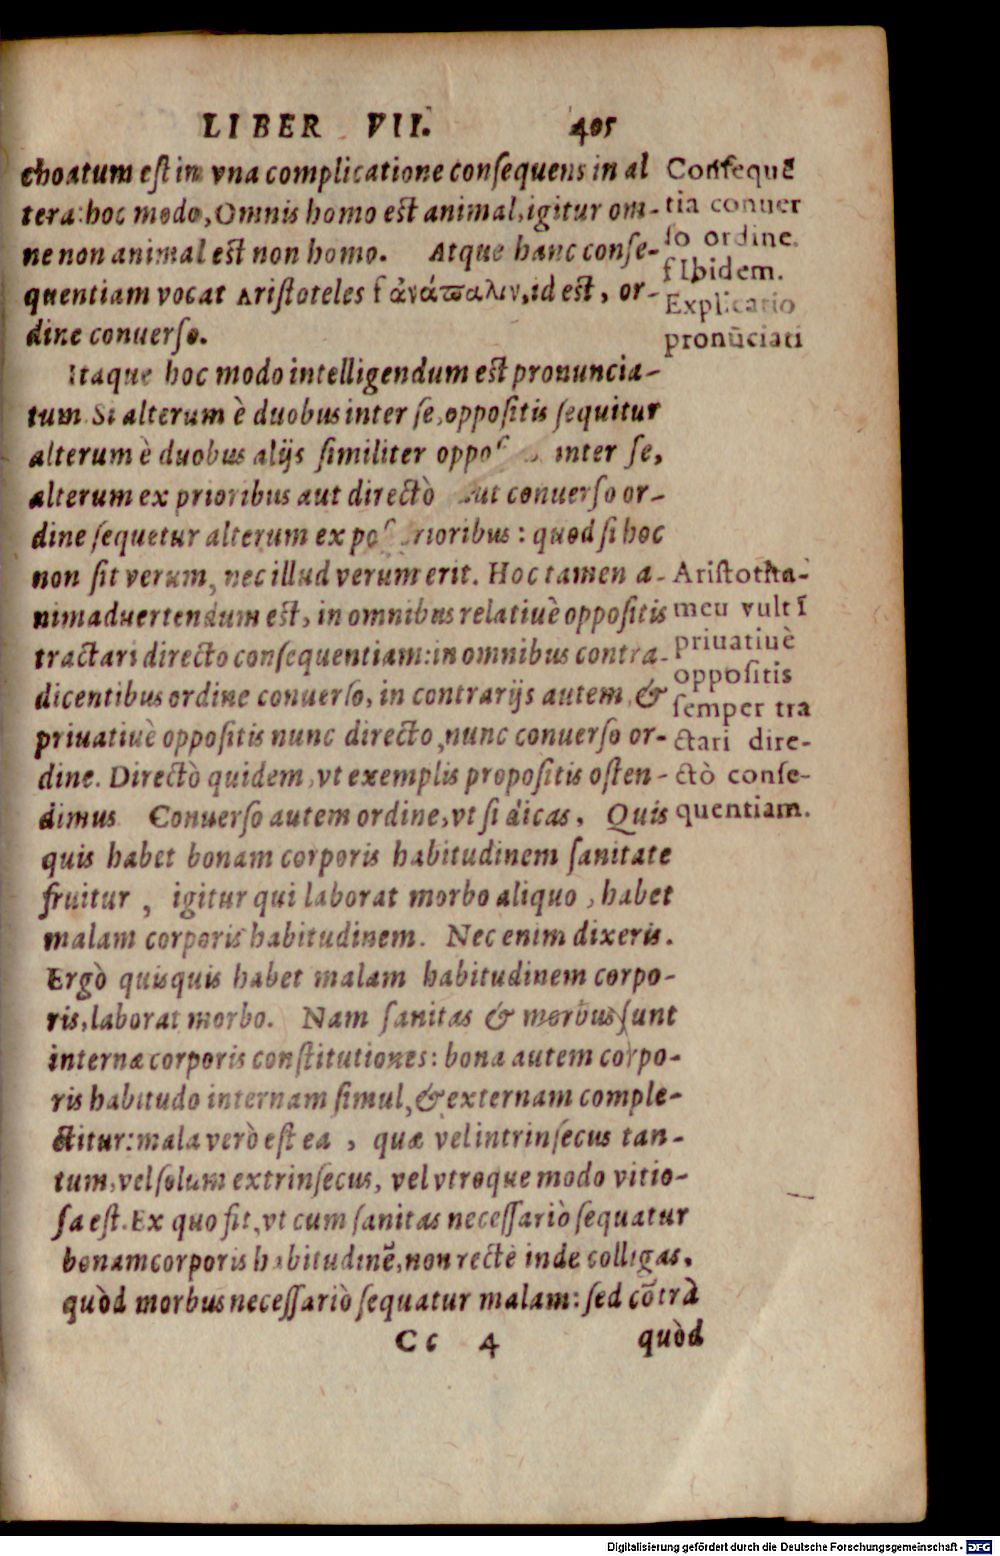 LIBER VII. 405
choatum est in vna complicatione consequens in al
tera: hoc modo, Omnis homo est animal, igitur om-
ne non animal est non homo. Atque hanc conse-
quentiam vocat Aristoteles f ἀνάπαλιν, id est, or-
dine conuerso.
Itaque hoc modo intelligendum est pronuncia-
tum. Si alterum è duobus inter se, oppositis sequitur
alterum è duobus alijs similiter inter se,
alterum ex prioribus aut directò aut conuerso or-
dine sequetur alterum ex : quod si hoc
non sit verum, nec illud verum erit. Hoc tamen a-
nimaduertendum est, in omnibus relatiuè oppositis
tractari directo consequentiam: in omnibus contra-
dicentibus ordine conuerso, in contrarijs autem, &
priuatiuè oppositis nunc directo, nunc conuerso or-
dine. Directò quidem, vt exemplis propositis osten-
dimus Conuerso autem ordine, vt si dicas, Quis
quis habet bonam corporis habitudinem sanitate
fruitur, igitur qui laborat morbo aliquo, habet
malam corporis habitudinem. Nec enim dixeris.
Ergò quisquis habet malam habitudinem corpo-
ris, laborat morbo. Nam sanitas & morbus sunt
internæ corporis constitutiones: bona autem corpo-
ris habitudo internam simul, & externam comple-
ctitur: mala verò est ea, quæ vel intrinsecus tan-
tum, vel solum extrinsecus, vel vtroque modo vitio-
sa est. Ex quo fit, vt cum sanitas necessariò sequatur
bonam corporis habitudinē, non recte inde colligas,
quòd morbus necessariò sequatur malam: sed cōtrà
Cc 4 quòd
Consequē
tia conuer
so ordine.
f Ibidem.
Explicatio
pronūciati
meu vult ī
priuatiuè
oppositis
semper tra
ctari dire-
ctò conse-
quentiam.
Digitalisierung gefördert durch die Deutsche Forschungsgemeinschaft - DFG